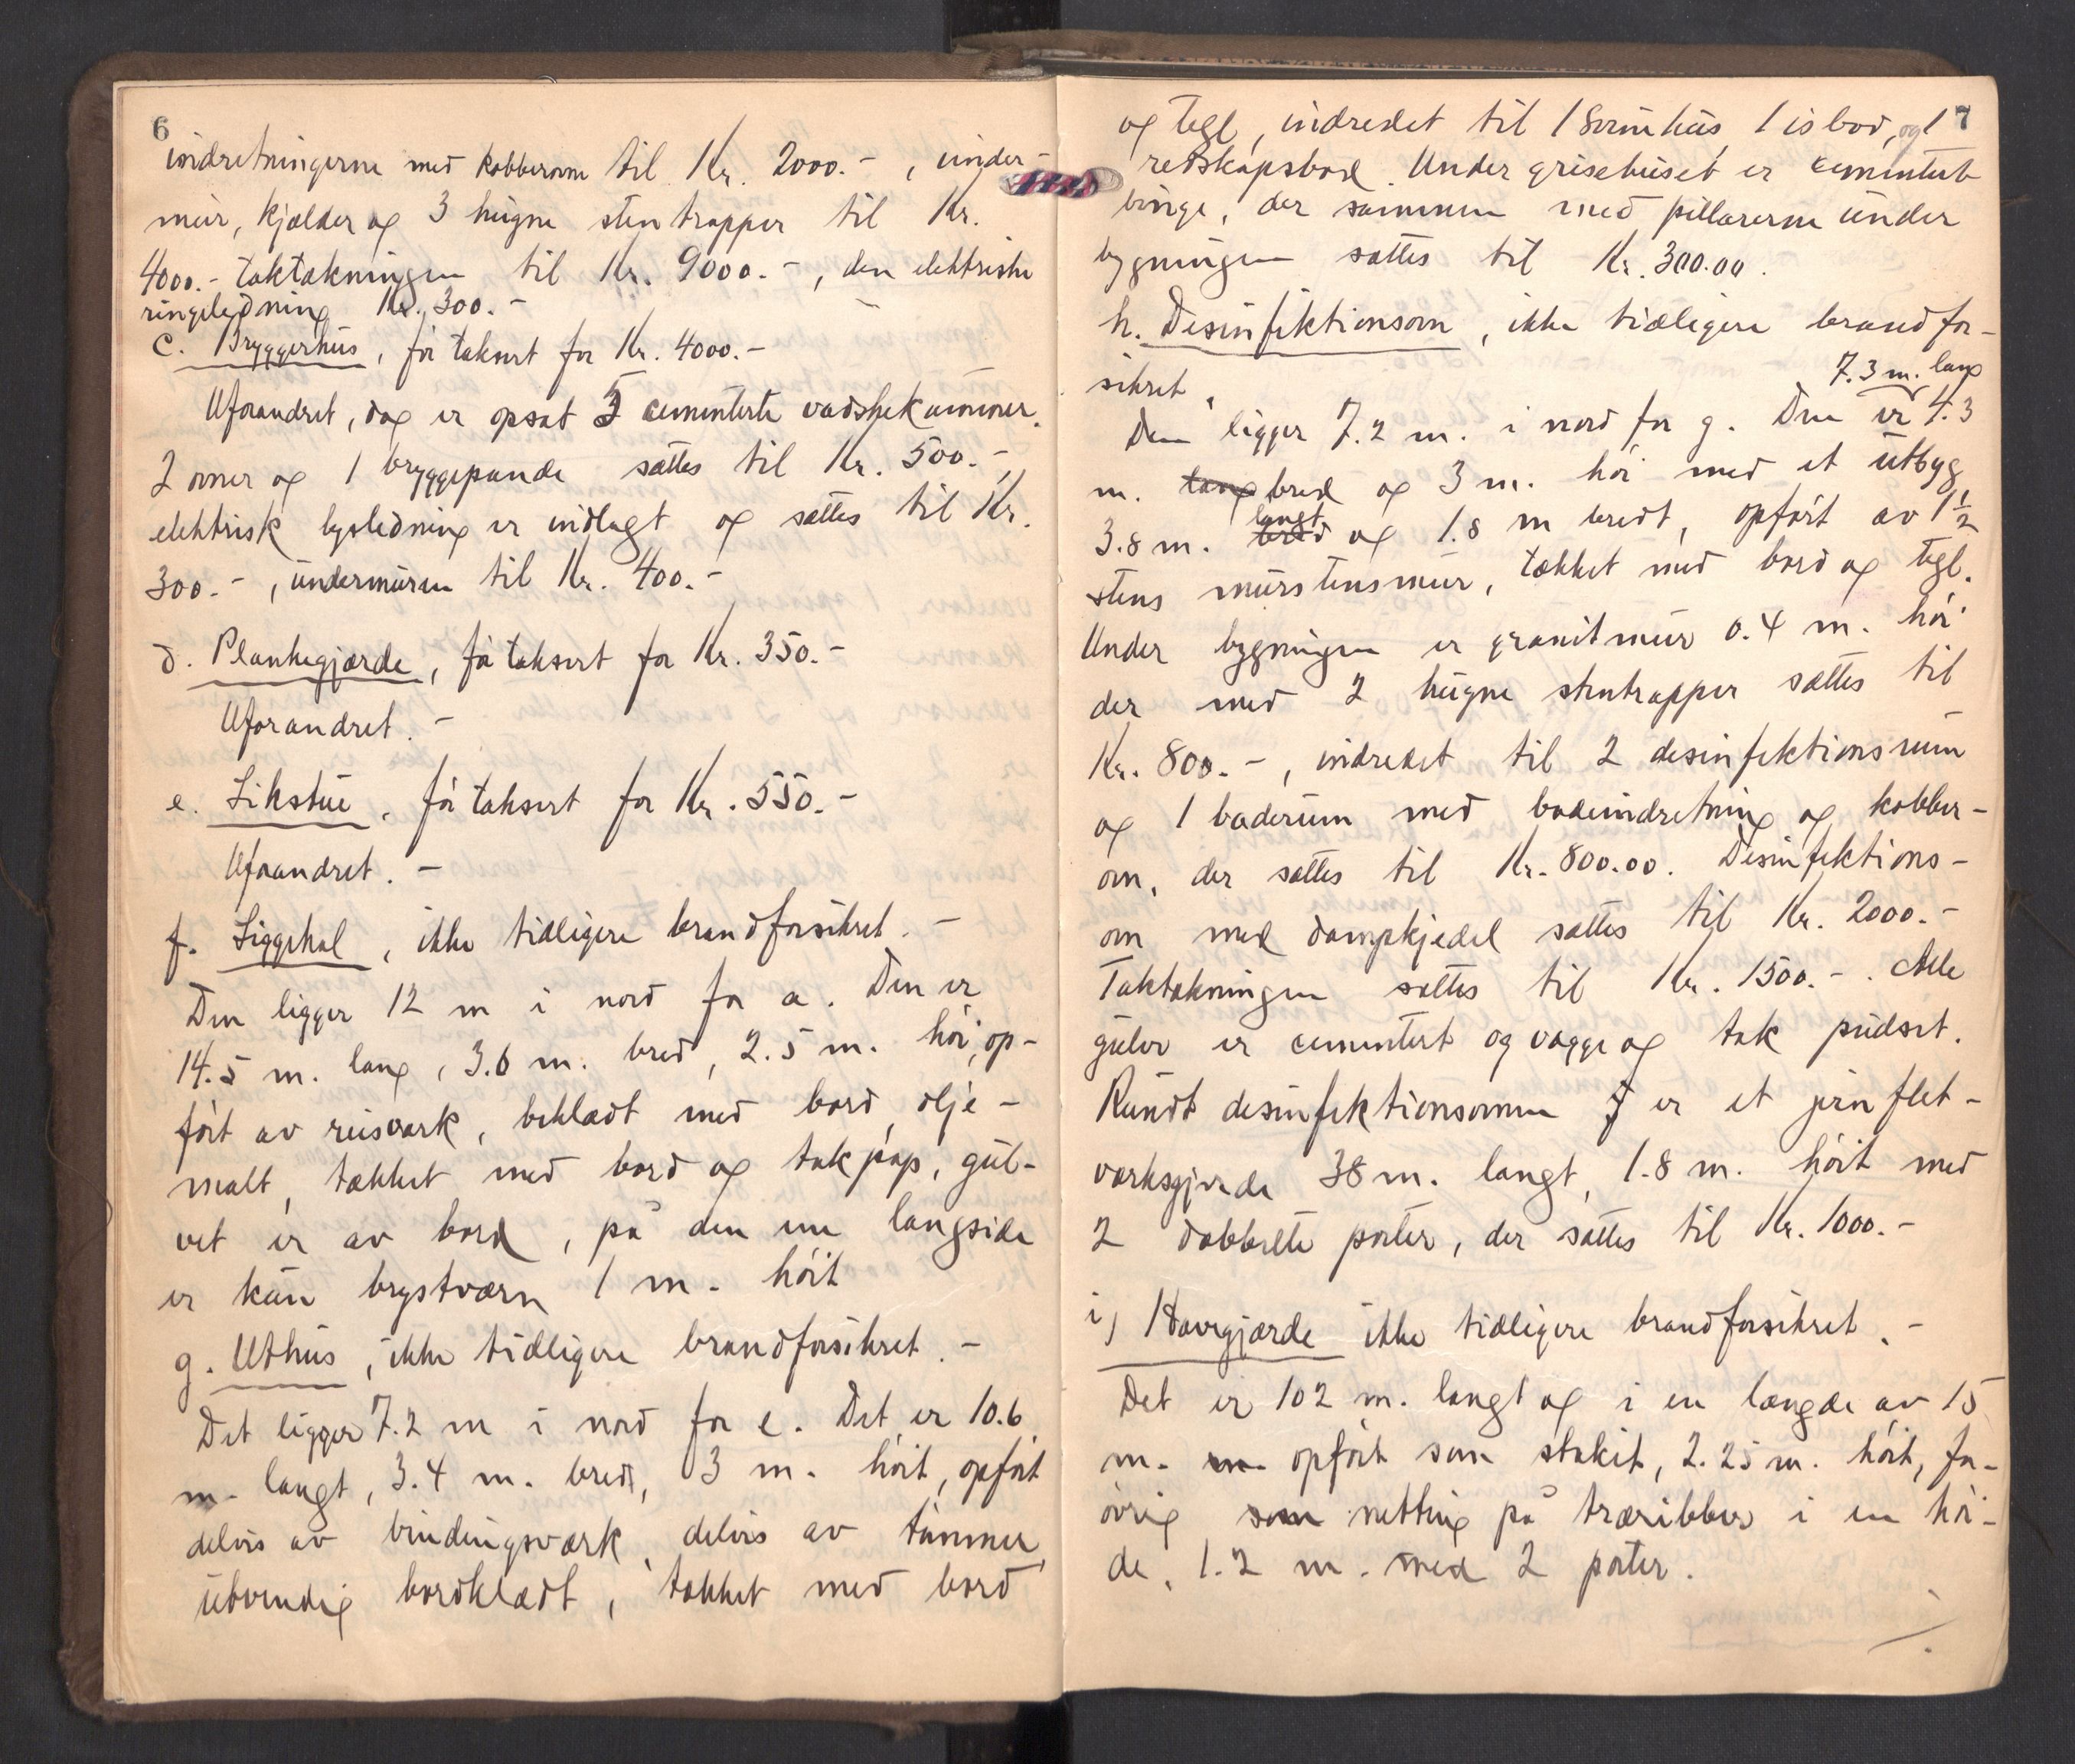 6
indretningerne med kobberovn til Kr. 2000.-, under-
mur, kjælder og 3 hugne stentrapper til Kr.
4000.- taktækningen til Kr. 9000.-, den elektriske
ringeledning Kr. 300.-
c. Bryggerhus, før taksert for Kr. 4000.-
Uforandret, dog er opsat 5 cementerte vadskekummer.
2 ovner og 1 bryggepande sættes til Kr. 500.-,
elektrisk lysledning er indlagt og sættes til Kr.
300.-, undermuren til Kr. 400.-
d. Plankegjærde, før taksert for Kr. 350.-
Uforandret.-
e. Likstue, før taksert for Kr. 550.-
Uforandret.-
f. Liggehal, ikke tidligere brandforsikret.-
Den ligger 12 m i nord for a. Den er
14.5 m. lang, 3.6 m. bred, 2.5 m. høi, op-
ført av reisverk, beklædt med bord, olje-
malt, tækket med bord og takpap, gul-
vet er av bord, på den ene langside
er kun brystværn 1 m. høit
g. Uthus, ikke tidligere brandforsikret.-
Det ligger 7.2 m i nord for e. Det er 10.6
m. langt, 3.4 m. bredt, 3 m. høit, opført
delvis av bindingsværk, delvis av tømmer,
utvendig bordklædt, tækket med bord
7
og tegl, indredet til 1 isbod, og 1
redskapsbod. Under grisehuset er cementert
binge, der sammen med pillarerne under
bygningen sættes til Kr. 300.00.
h. Desinfektionsovn, ikke tidligere brandfor-
sikret.
7.3 m. lang
Den ligger 7.2 m. i nord for g. Den er 4.3
m. lang bred og 3 m. høi med et utbyg
langt
3.8 m. bred og 1.8 m bredt, opført av 1½
stens murstensmur, tækket med bord og tegl.
Under bygningen er granitmur 0.4 m. høi
der med 2 hugne stentrapper sættes til
Kr. 800.-, indredet til 2 desinfektionsrum
og 1 baderum med badeindretning og kobber-
ovn, der sættes til Kr. 800.00. Desinfektions-
ovn med dampkjedel sættes til Kr. 2000.-
Taktækningen sættes til Kr. 1500.-. Alle
gulve er cementert og vægge og tak pudset.
Rundt desinfektionsovnen er et jernflet-
verksgjerde 38 m. langt, 1.8 m. høit med
2 dobbelte porter, der sættes til Kr. 1000.-
i) Havegjærde ikke tidligere brandforsikret.-
Det er 102 m. langt og i en længde av 15
m. m. opført som stakit, 2.25 m. høit, for-
øvrig som netting på træribber i en høi-
de, 1.2 m. med 2 porter.